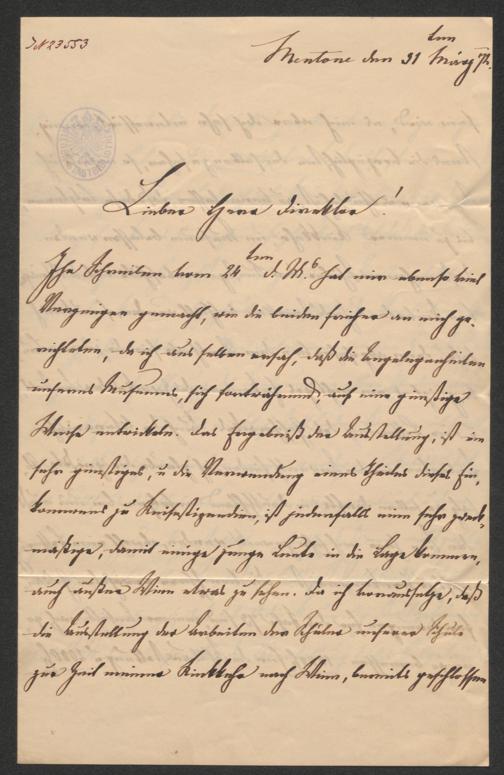 JN 23553
Mentone den 31ten März 72.
Lieber Herr Direktor!
Ihr Schreiben vom 24ten d. Mts hat mir ebenso viel
Vergnügen gemacht, wie die beiden früher an mich ge-
richteten, da ich aus selben ersah, daß die Angelegenheiten
unseres Museums, sich fortwährend, auf eine günstige
Weise entwickeln. Das Ergebniß der Ausstellung, ist ein
sehr günstiges, u die Verwendung eines Theiles dieses Ein-
kommens zu Reisestipendien, ist jedenfalls eine sehr zweck-
mäßige, damit einige junge Leute in die Lage kommen,
auch außer Wien etwas zu sehen. Da ich voraussetze, daß
die Ausstellung der Arbeiten der Schüler unserer Schule
zur Zeit meiner Rückkehr nach Wien, bereits geschlossen